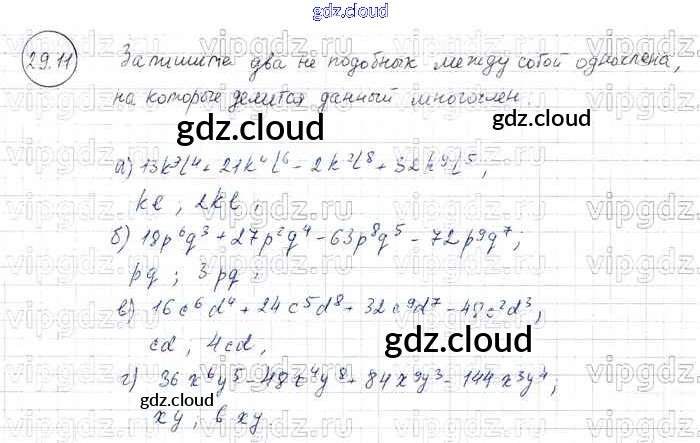 gdz.cloud
29.11 Запишите два не подобных между собой одночлена,
на которые делится данный многочлен.
gdz.cloud
а) 13k³l⁴ + 21k⁴l⁶ - 2k²l⁸ + 32k⁹l⁵;
kl; 2kl;
gdz.cloud
б) 18p⁶q³ + 27p²q⁴ - 63p⁸q⁵ - 72p⁹q⁷;
pq; 3pq;
в) 16c⁶d⁴ + 24c⁵d⁸ + 32c⁹d⁷ - 48c²d³,
gdz.cloud
cd; 4cd,
г) 36x⁶y⁵ - 48x⁴y⁸ + 84x⁹y³ - 144x³y⁴;
gdz.cloud
xy, 6xy.